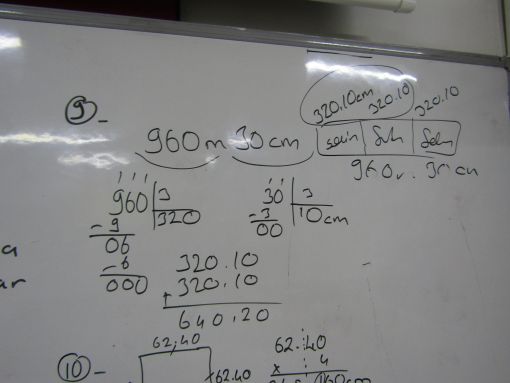 9-
960m 30cm
320.10cm 320.10 320.10
960 3
320
- 9
06
- 6
000
30 3
10cm
- 3
00
320.10
+ 320.10
640.20
a
ar
10-
62,40
62.40
62.40
x 4